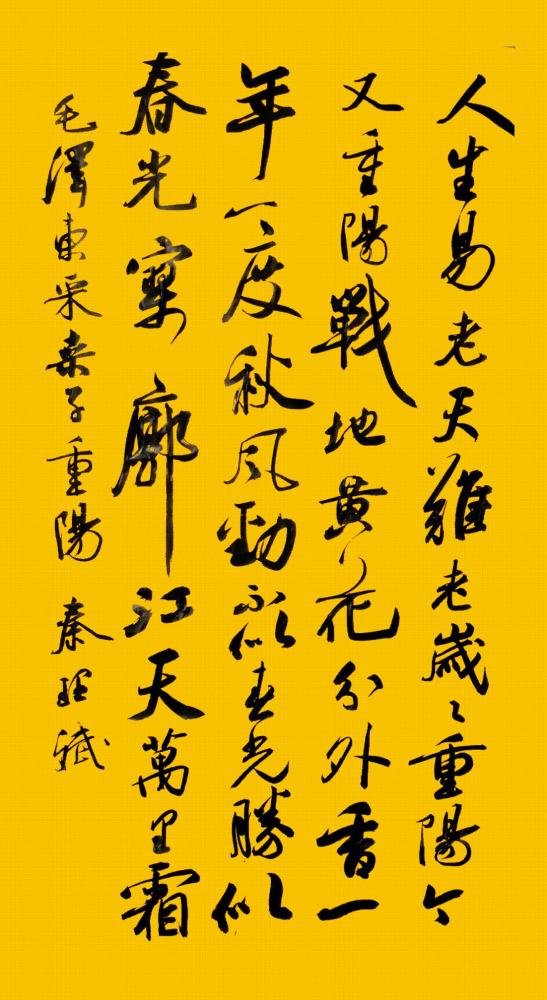 人生易老天難老歲〻重陽今
又重陽戰地黃花分外香一
年一度秋風勁不似春光勝似
春光寥廓江天萬里霜
毛澤東采桑子重陽 秦